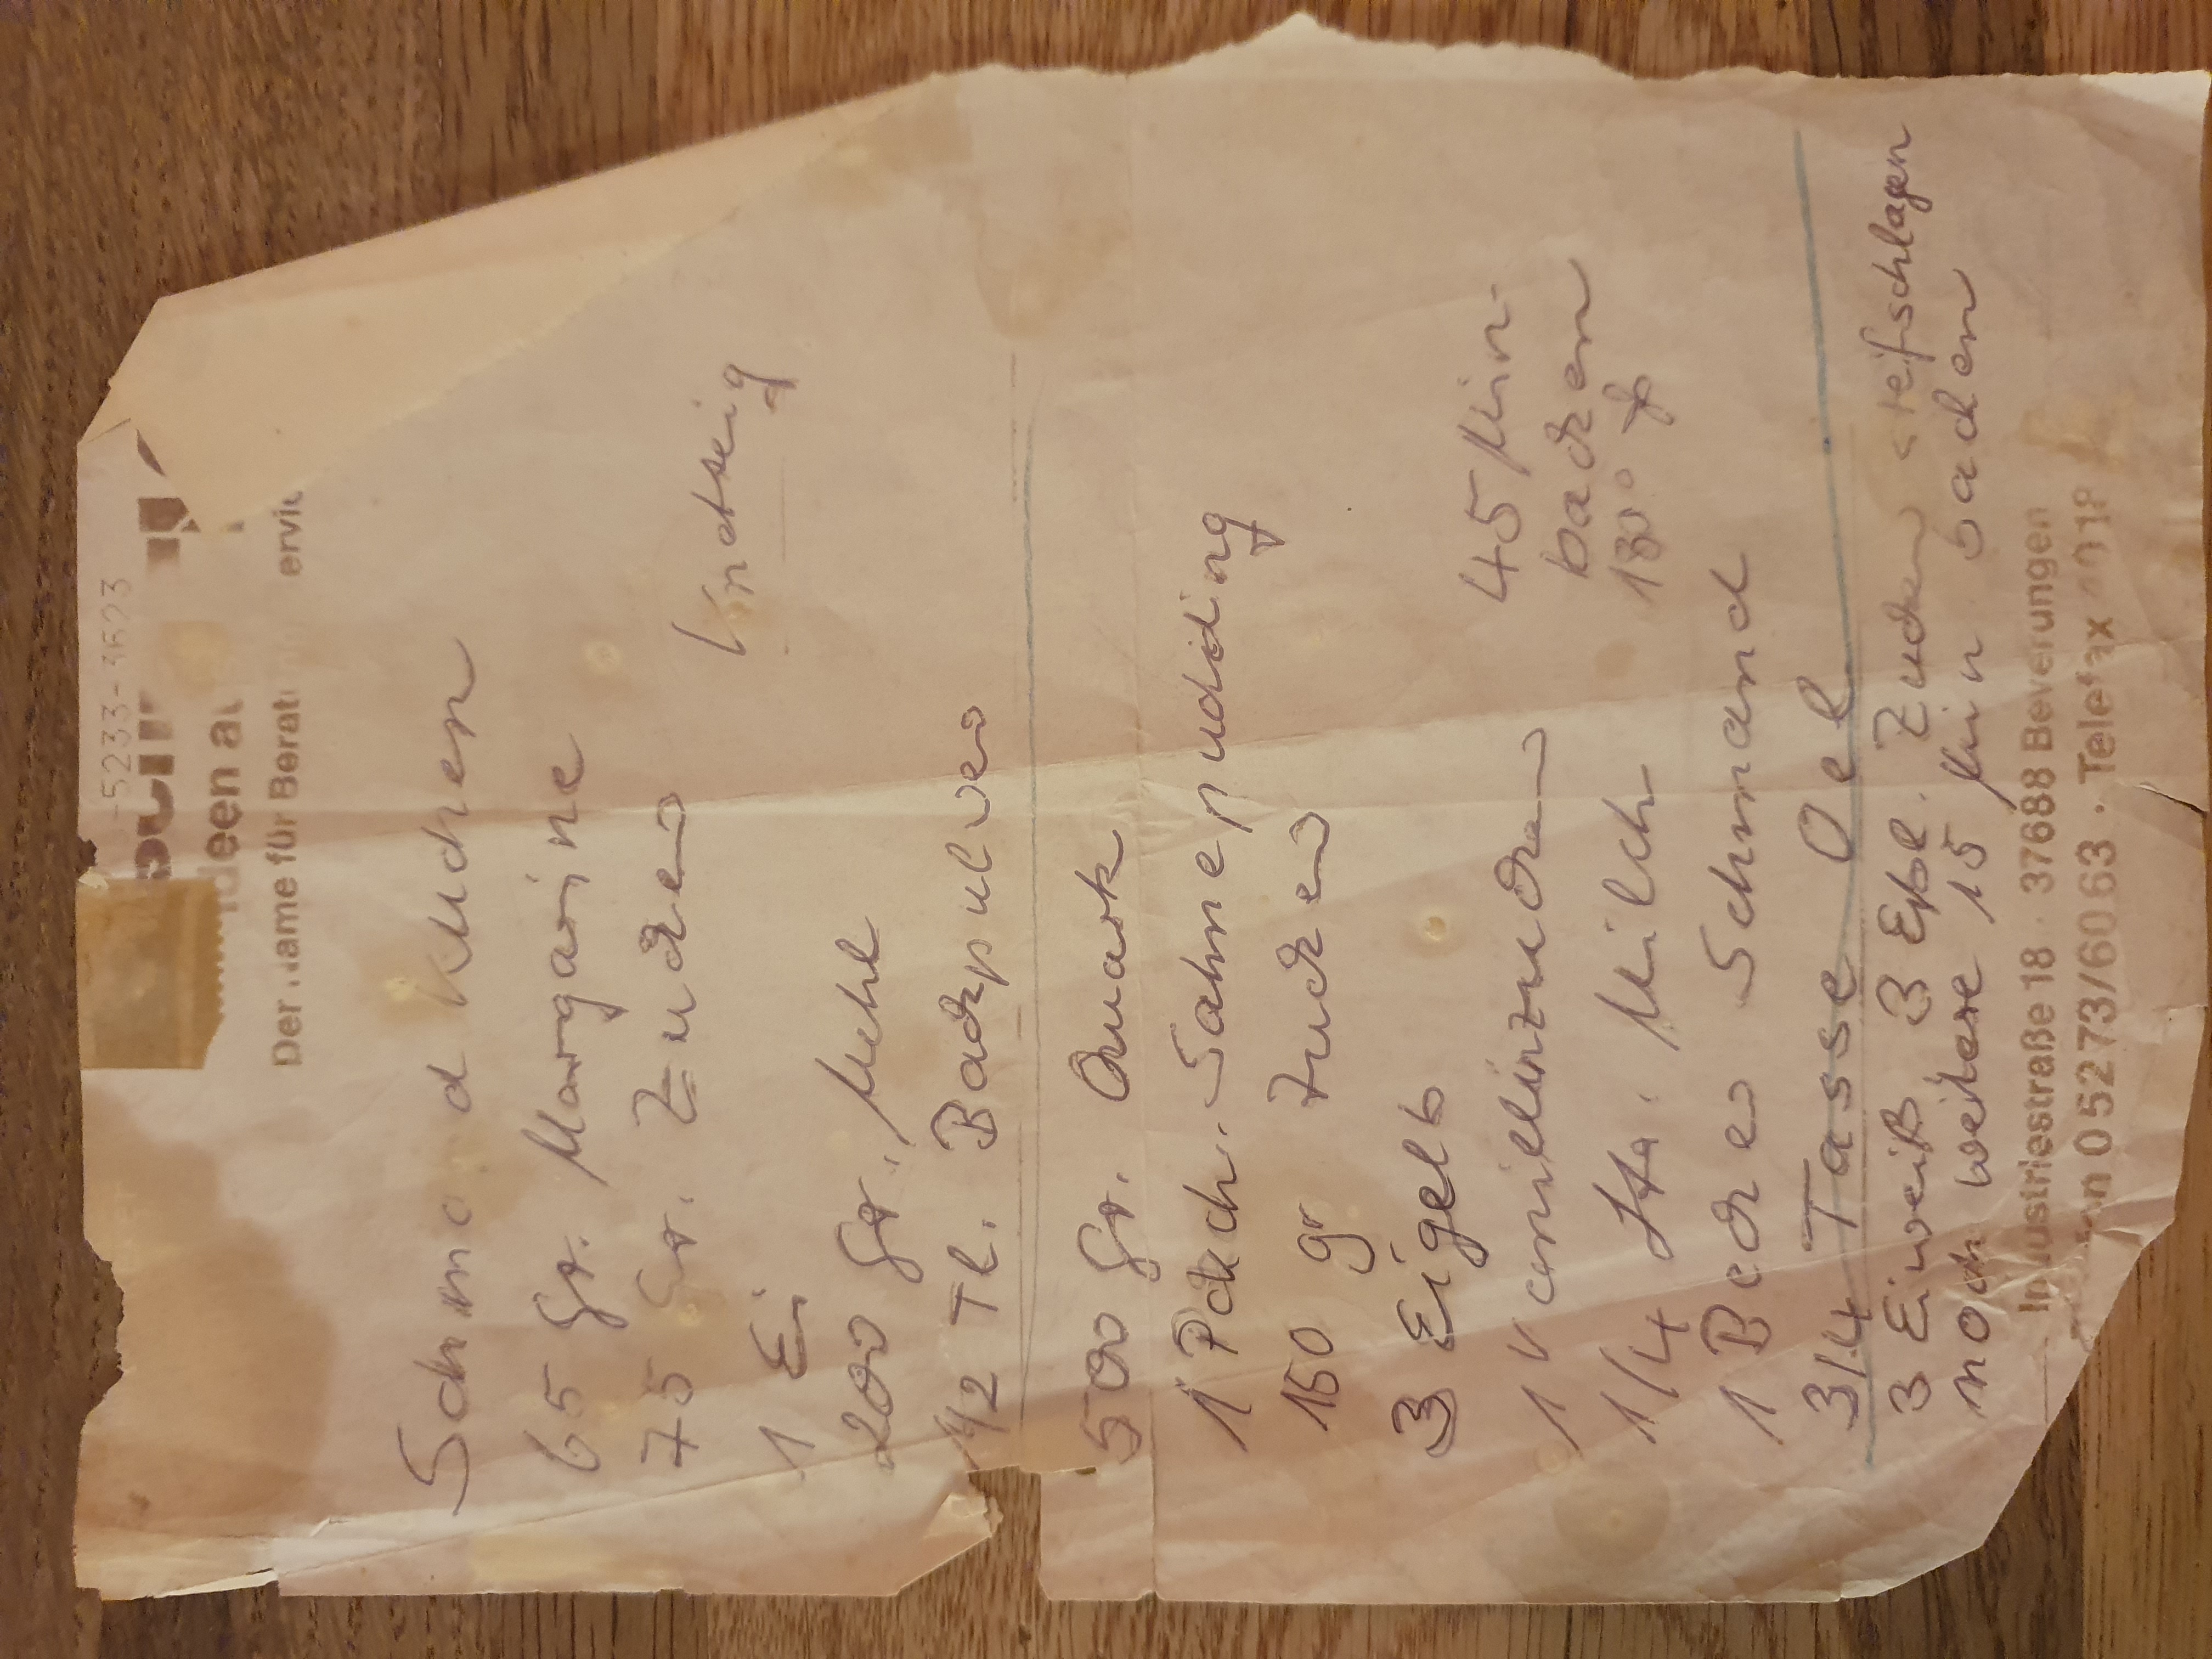 -5233-3623
deen a
Der Name für Berat ervic
Schmand kuchen
65 Gr. Margarine
75 Gr. Zucker
Knetteig
1 Ei
200 Gr. Mehl
1/2 Tl. Backpulver
500 Gr. Quark
1 Päck. Sahnepudding
150 gr Zucker
3 Eigelb
1 Vanillinzucker
45 Min-
backen
1/4 Ltr. Milch
180°
1 Becher Schmand
3/4 Tasse Oel
3 Eiweiß 3 Eßl. Zucker steifschlagen
noch weitere 15 Min backen
Industriestraße 18 · 37688 Beverungen
on 0 52 73/60 63 · Telefax